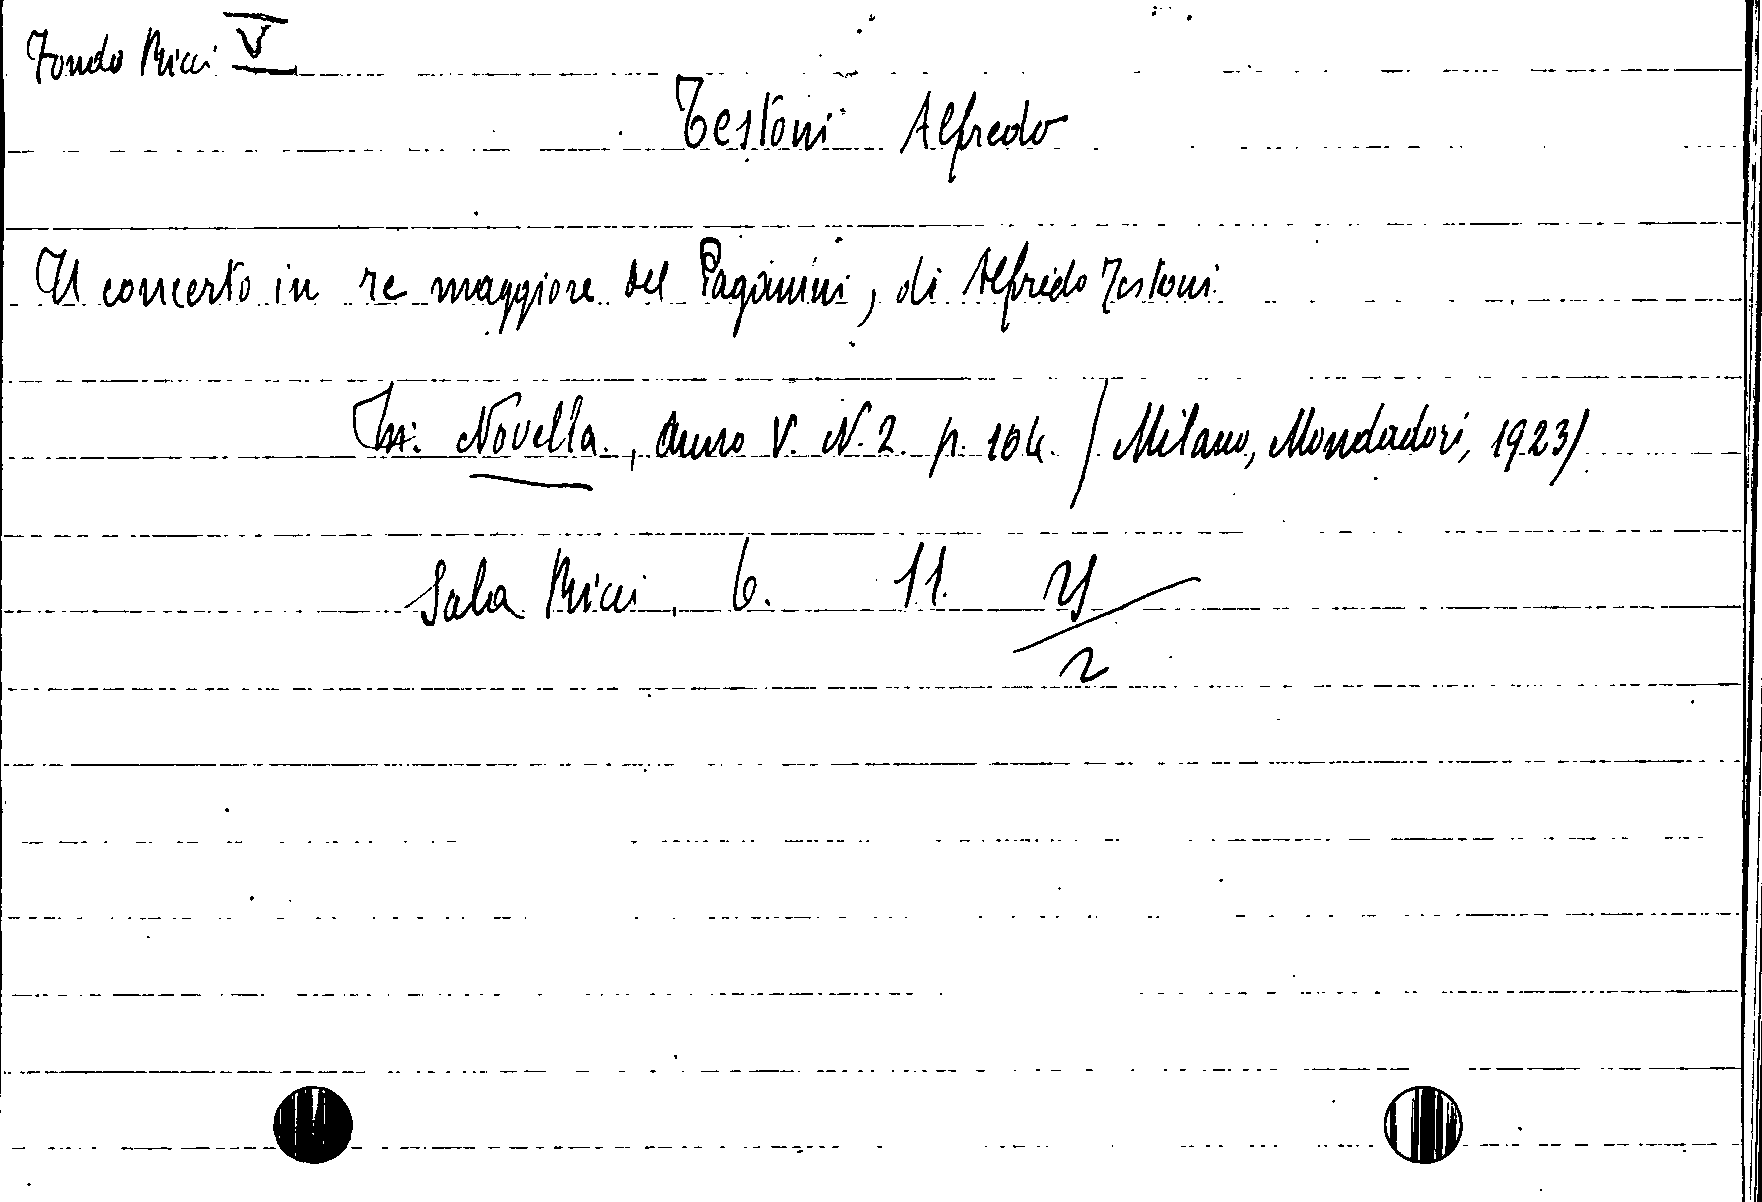 Fondo Ricci V
Testoni Alfredo
Il concerto in re maggiore del Paganini, di Alfredo Testoni
In: Novella., Anno V. N. 2. p. 104. / Milano, Mondadori, 1923/
Sala Ricci. 6. 11. 21/2